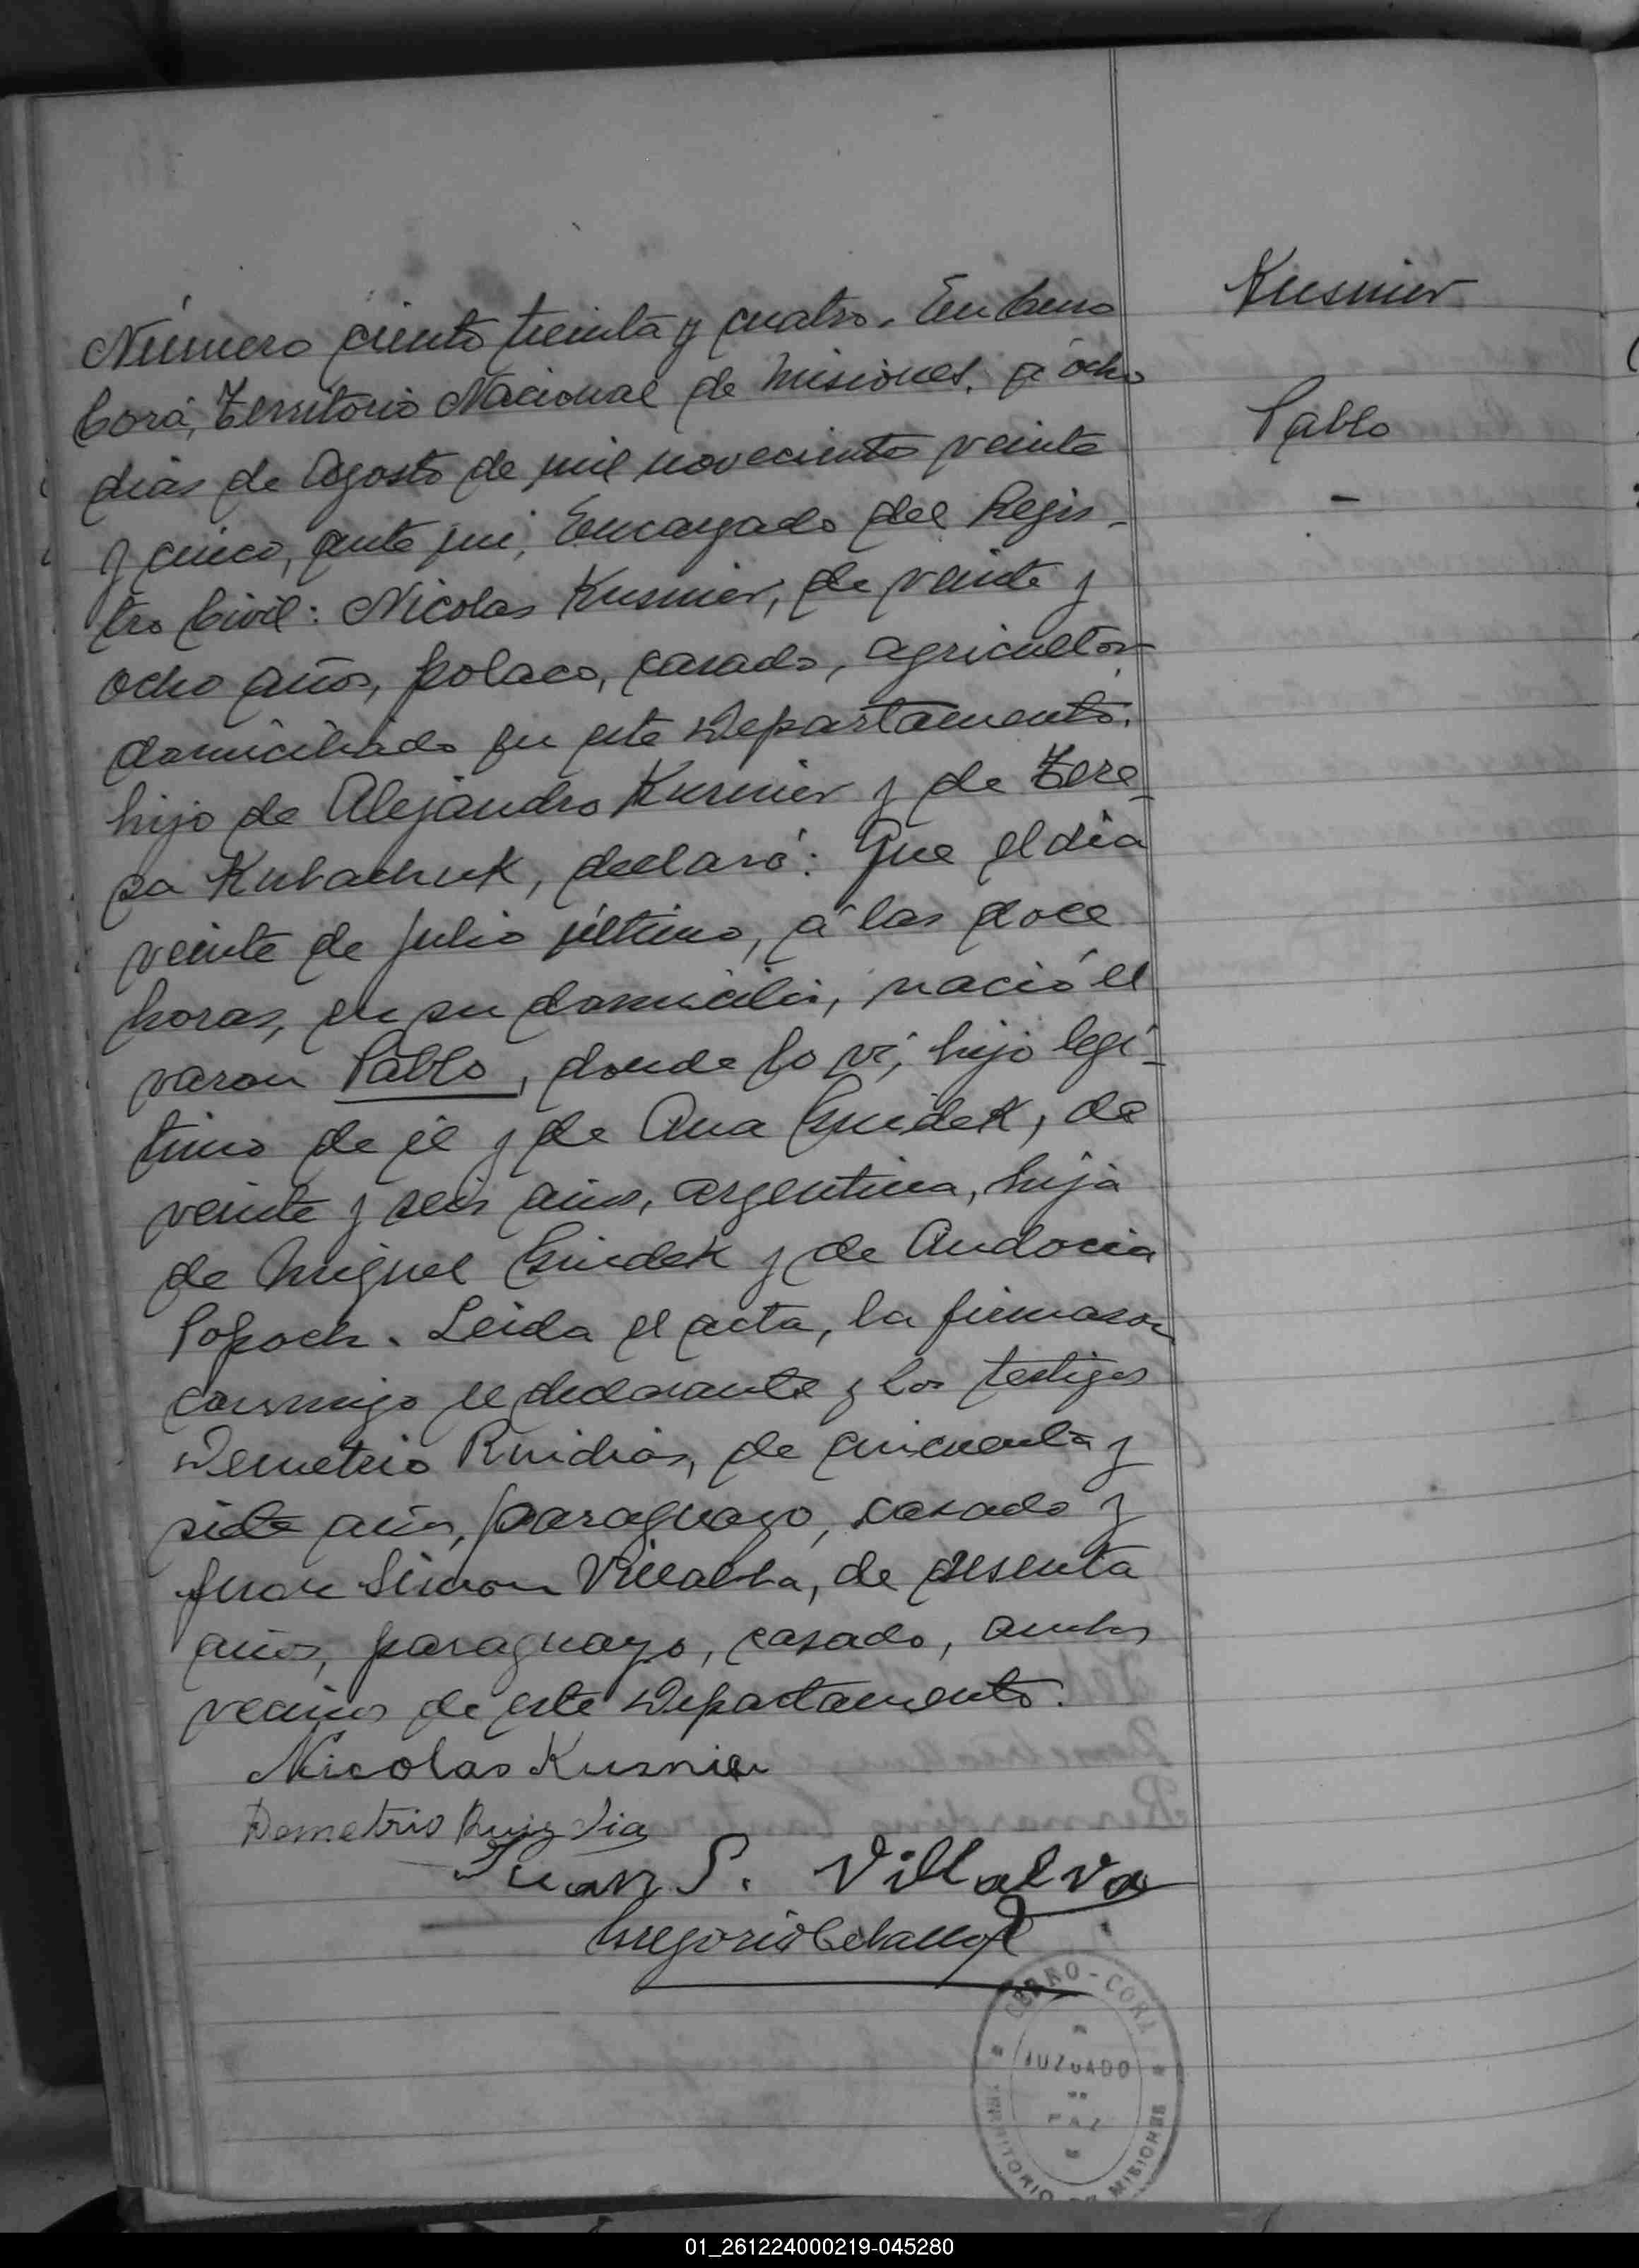 Kusnier
Pablo
Número ciento treinta y cuatro. En Cerro
Corá, Territorio Nacional de Misiones, a ocho
dias de Agosto de mil novecientos veinte
y cinco, ante mi, Encargado del Regis-
tro Civil: Nicolas Kusnier, de veinte y
ocho años, polaco, casado, agricultor
domiciliado en este Departamento,
hijo de Alejandro Kusnier y de Tere-
sa Kubachuk, declaró: Que el dia
veinte de Julio último, á las doce
horas, en su domicilio, nació el
varon Pablo, donde lo ví, hijo legí-
timo de él y de Ana Gnidek, de
veinte y seis años, argentina, hija
de Miguel Gnidek y de Audocia
Popoch. Leida el acta, la firmaron
conmigo el declarante y los testigos
Demetrio Ruidias, de cincuenta y
siete años, paraguayo, casado y
Juan Simon Villalba, de sesenta
años, paraguayo, casado, ambos
vecinos de este Departamento.
Nicolas Kusnier
Demetrio Ruiz Dia
Juan S. Villalva
Gregorio Ceballos
CERRO-CORÁ
JUZGADO
DE
PAZ
TERRITORIO DE MISIONES
01_261224000219-045280